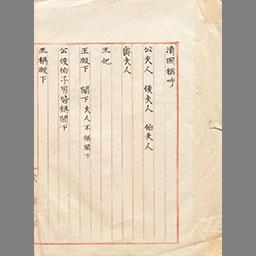 清國稱呼
公夫人 侯夫人 伯夫人
爵夫人
王妃
王殿下 閣下夫人不稱閣下
公侯伯子男皆稱閣下
王稱殿下